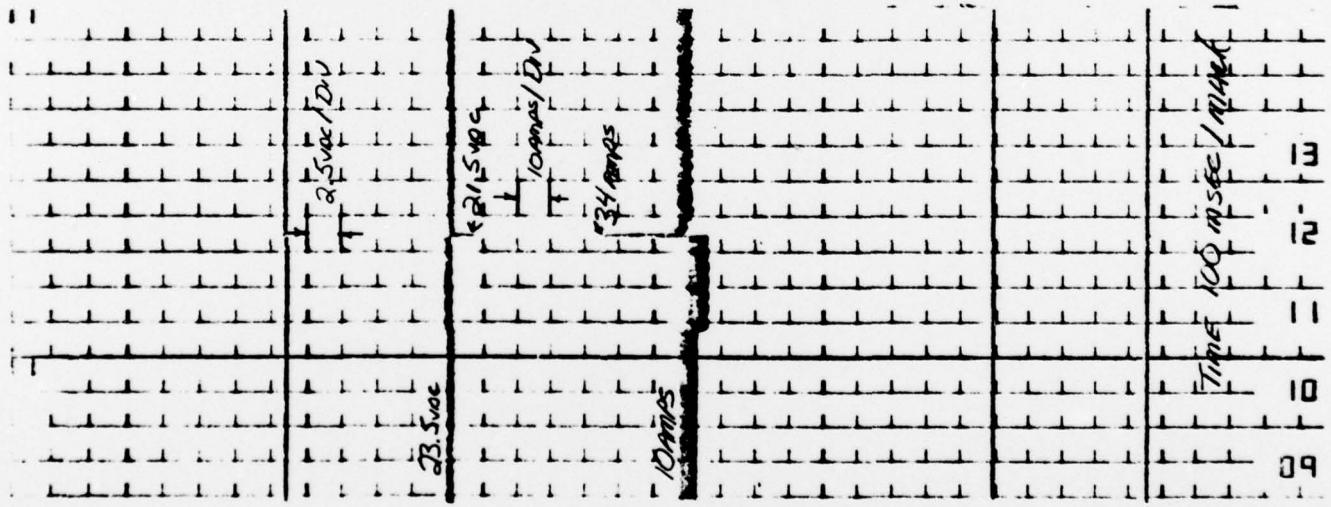 2.5 VDC / DIV
23.5 VDC
21.5 VDC
10 AMPS / DIV
34 AMPS
10 AMPS
TIME 100 MSEC / MARK
13
12
11
10
09